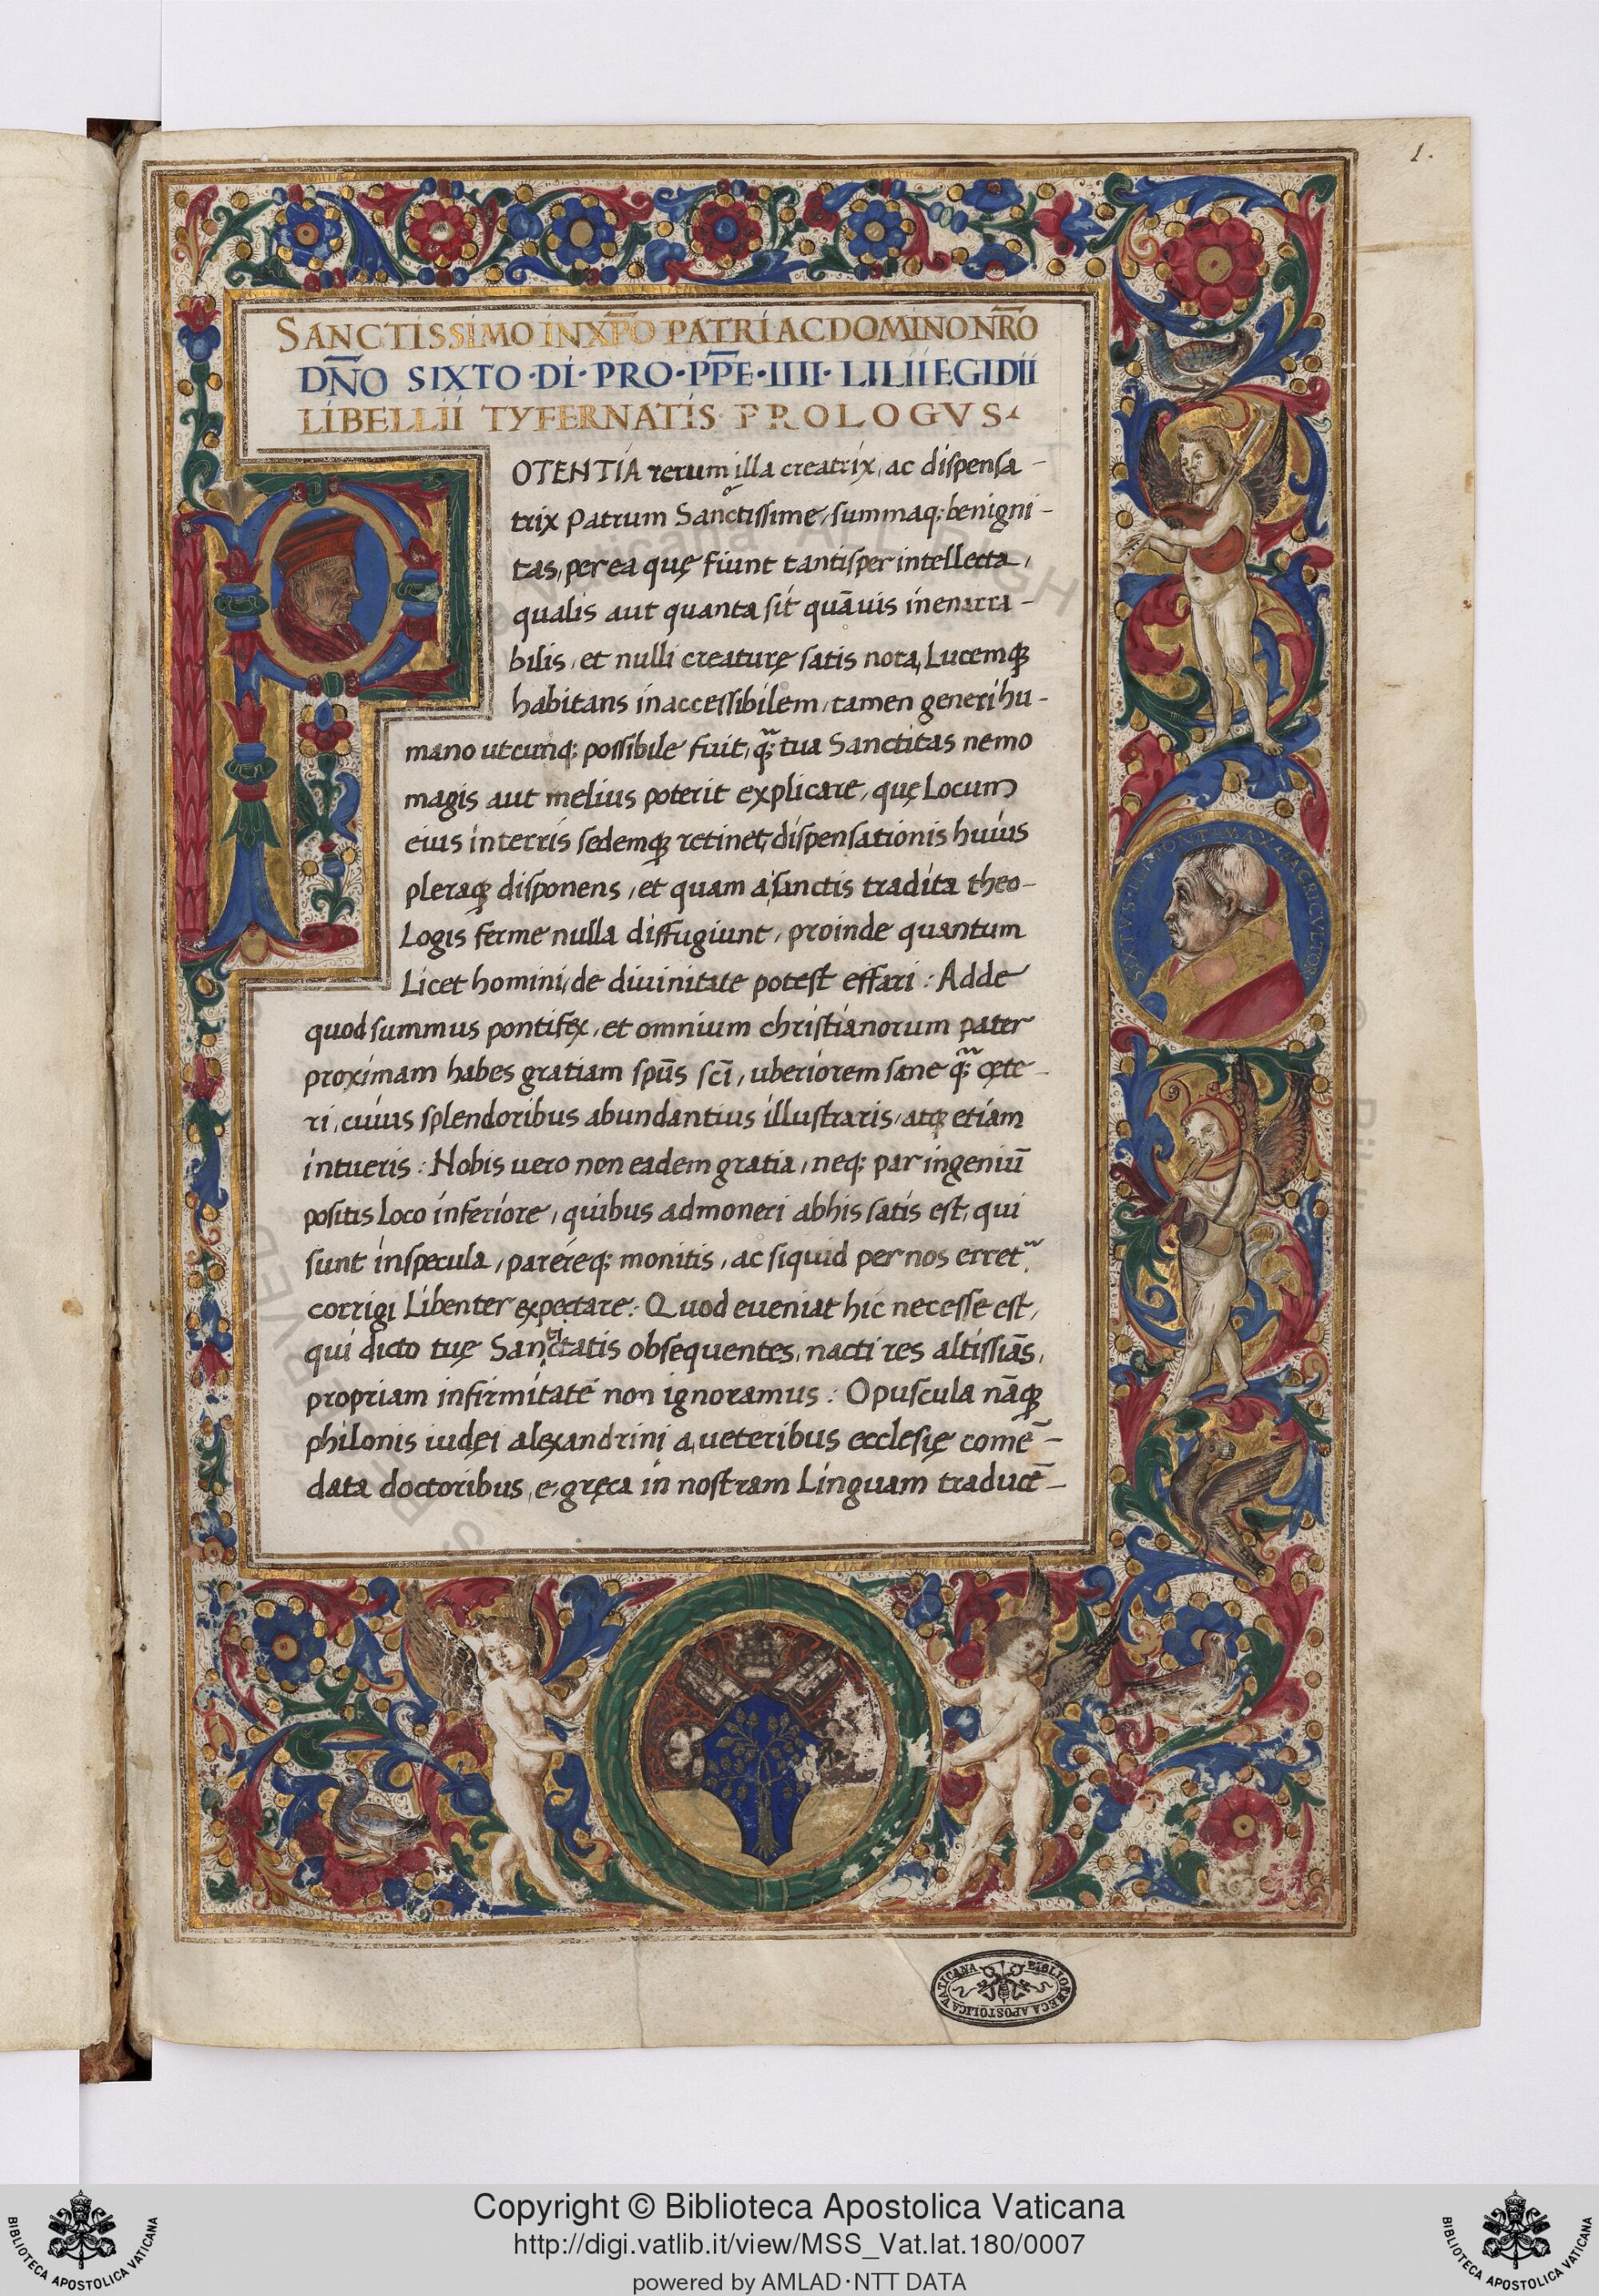 1.
SANCTISSIMO IN XP̄O PATRI AC DOMINO NR̄O
DN̄O SIXTO · DI · PRO · PP̄E · IIII · LILII EGIDII
LIBELLII TYFERNATIS PROLOGVS
POTENTIA rerum illa creatrix, ac dispensa-
trix Patrum Sanctissime, summaq; benigni-
tas, per ea quę fiunt tantisper intellecta,
qualis aut quanta sit quāuis inenarra-
bilis, et nulli creaturę satis nota, Lucemq;
habitans inaccessibilem, tamen generi hu-
mano utcunq; possibile fuit, q̃; tua Sanctitas nemo
magis aut melius poterit explicare, quę Locum
eius in terris sedemq; retinet, dispensationis huius
pleraq; disponens, et quam a sanctis tradita theo-
Logis ferme nulla diffugiunt, proinde quantum
Licet homini, de diuinitate potest effari : Adde
quod summus pontifex, et omnium christianorum pater
proximam habes gratiam spūs scī, uberiorem sane q̃; cęte-
ri, cuius splendoribus abundantius illustraris, atq; etiam
intueris : Nobis uero non eadem gratia, neq; par ingeniū
positis Loco inferiore, quibus admoneri ab his satis est, qui
sunt in specula, parereq; monitis, ac siquid per nos erret᷑,
corrigi Libenter expectare : Quod eueniat hic necesse est,
qui dicto tuę Sanctitatis obsequentes, nacti res altissiās,
propriam infirmitatē non ignoramus : Opuscula nāq;
philonis iudęi alexandrini a ueteribus ecclesię comē-
data doctoribus, e gręca in nostram Linguam traducē-
SIXTVS · IIII · PONT · MAX · SACRI CVLTOR
BIBLIOTHECA APOSTOLICA VATICANA
Copyright © Biblioteca Apostolica Vaticana
http://digi.vatlib.it/view/MSS_Vat.lat.180/0007
powered by AMLAD·NTT DATA
BIBLIOTECA APOSTOLICA VATICANA
BIBLIOTECA APOSTOLICA VATICANA